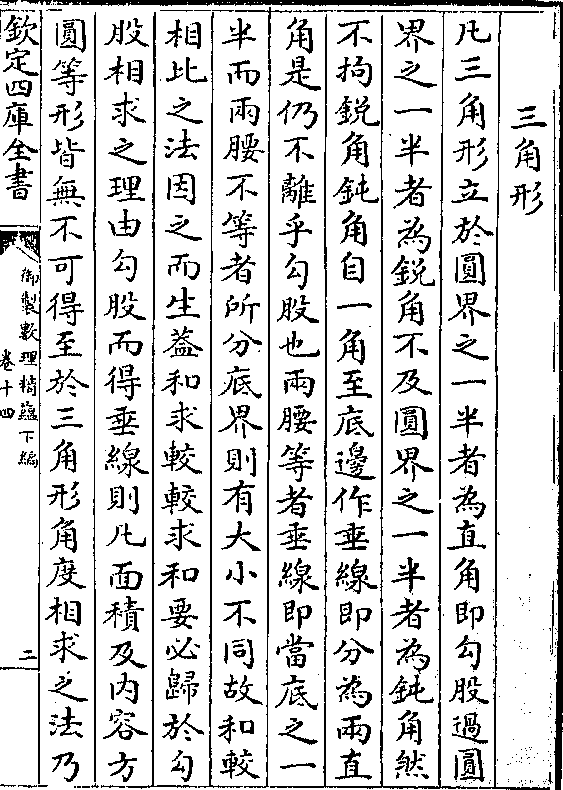 三角形
凡三角形立於圓界之一半者為直角即勾股過圓
界之一半者為鋭角不及圓界之一半者為鈍角然
不拘鋭角鈍角自一角至底邊作垂線即分為兩直
角是仍不離乎勾股也兩腰等者垂線即當底之一
半而兩腰不等者所分底界則有大小不同故和較
相比之法因之而生葢和求較較求和要必歸於勾
股相求之理由勾股而得垂線則凡面積及内容方
圓等形皆無不可得至於三角形角度相求之法乃
欽定四庫全書
御製數理精藴下編
卷十四
二